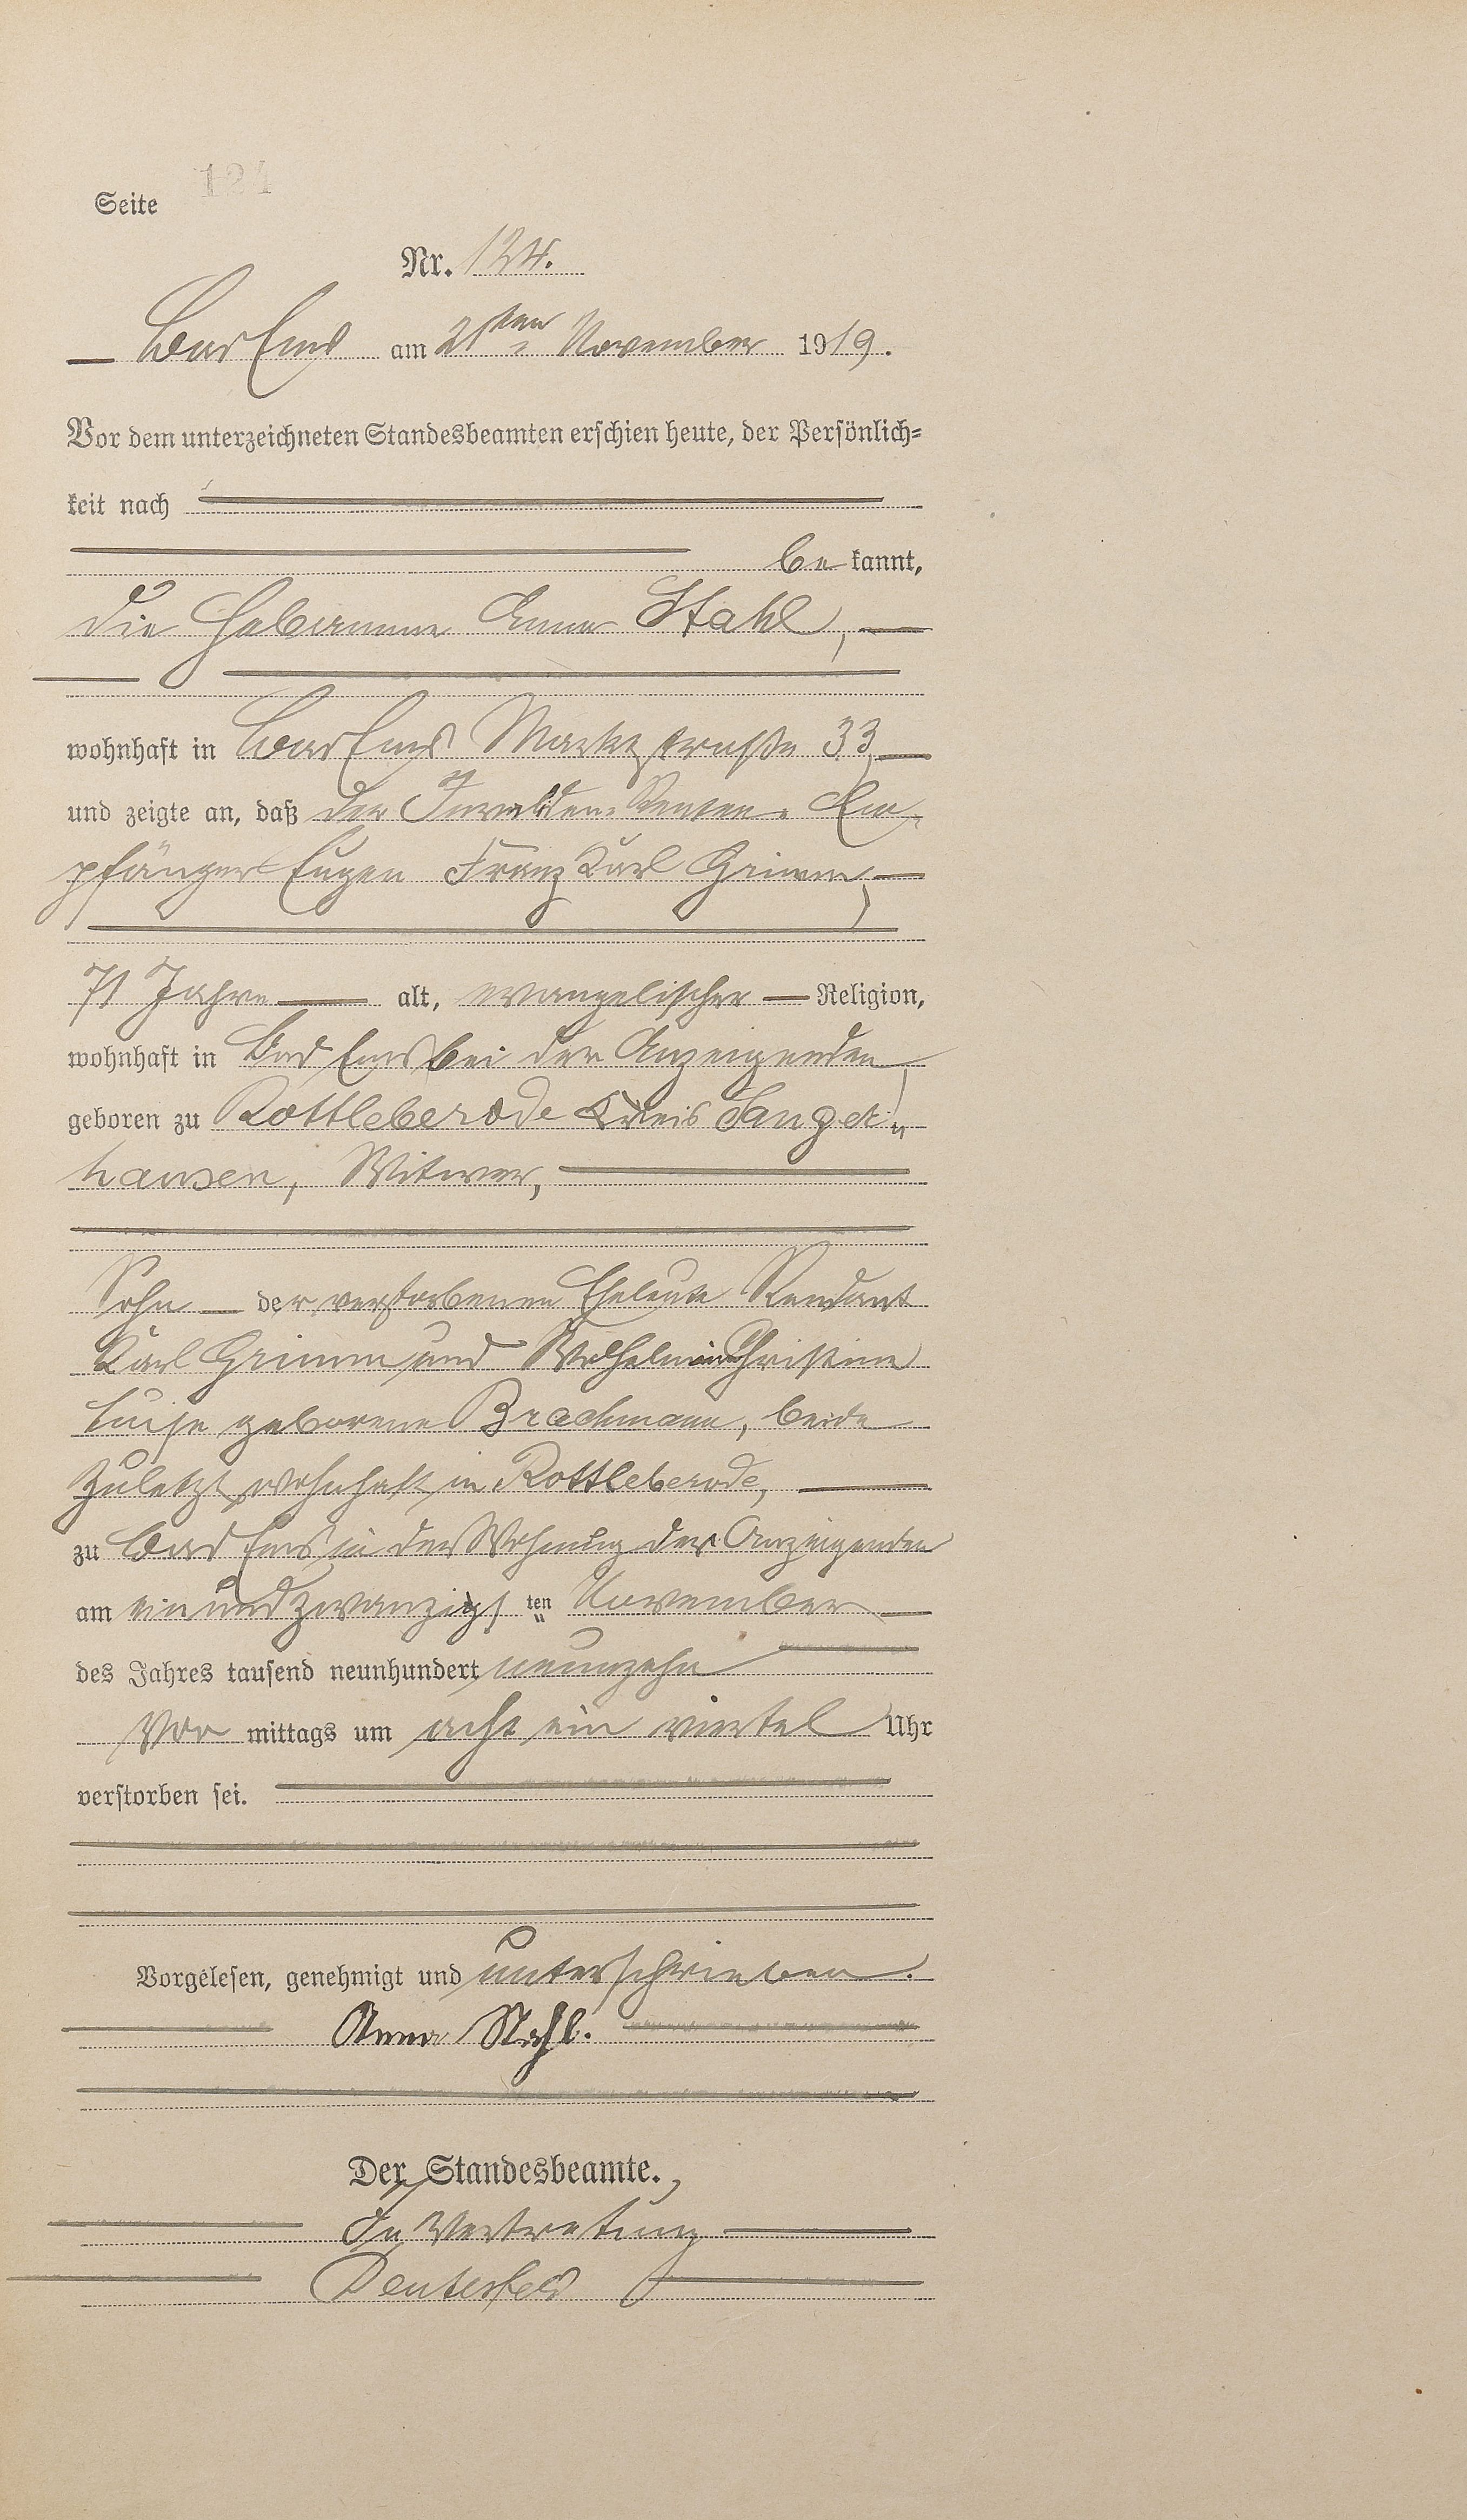 Seite 124
Nr. 124.
Bad Ems am 21ten November 1919.
Vor dem unterzeichneten Standesbeamten erschien heute, der Persönlich-
keit nach
be kannt,
die Hebamme Anna Stahl,
wohnhaft in Bad Ems Marktstraße 33
und zeigte an, daß der Invaliden-Renten-Em-
pfänger Eugen Franz Karl Grimm,
71 Jahre alt, evangelischer Religion,
wohnhaft in Bad Ems bei der Anzeigenden,
geboren zu Rottleberode Kreis Sanger-
hausen, Witwer,
Sohn der verstorbenen Eheleute Rendant
Karl Grimm und Wilhelmine Christine
Luise geborene Brachmann, beide
zuletzt wohnhaft in Rottleberode,
zu Bad Ems in der Wohnung der Anzeigenden
am einundzwanzigs ten November
des Jahres tausend neunhundert neunzehn
Vor mittags um acht ein viertel Uhr
verstorben sei.
Vorgelesen, genehmigt und unterschrieben.
Anna Stahl.
Der Standesbeamte.
In Vertretung